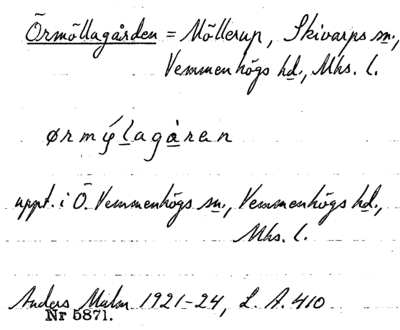 Örmöllagården = Möllerup, Skivarps sn.,
Vemmenhögs hd., Mhs. l.
ørmýlagåran
uppt. i Ö. Vemmenhögs sn., Vemmenhögs hd.,
Mhs. l.
Anders Malm 1921-24, L. A. 410
Nr 5871.